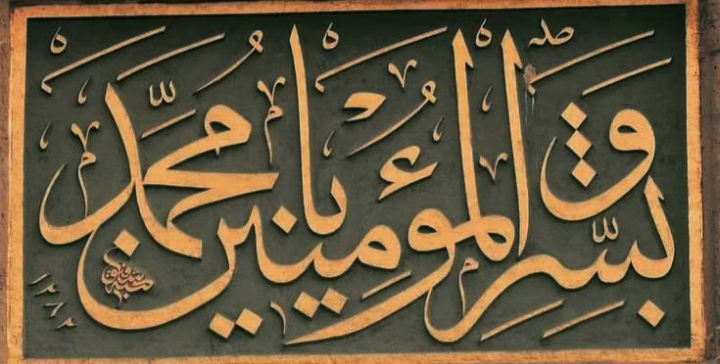 وبشر المؤمنين يا محمد
١٢٨٢